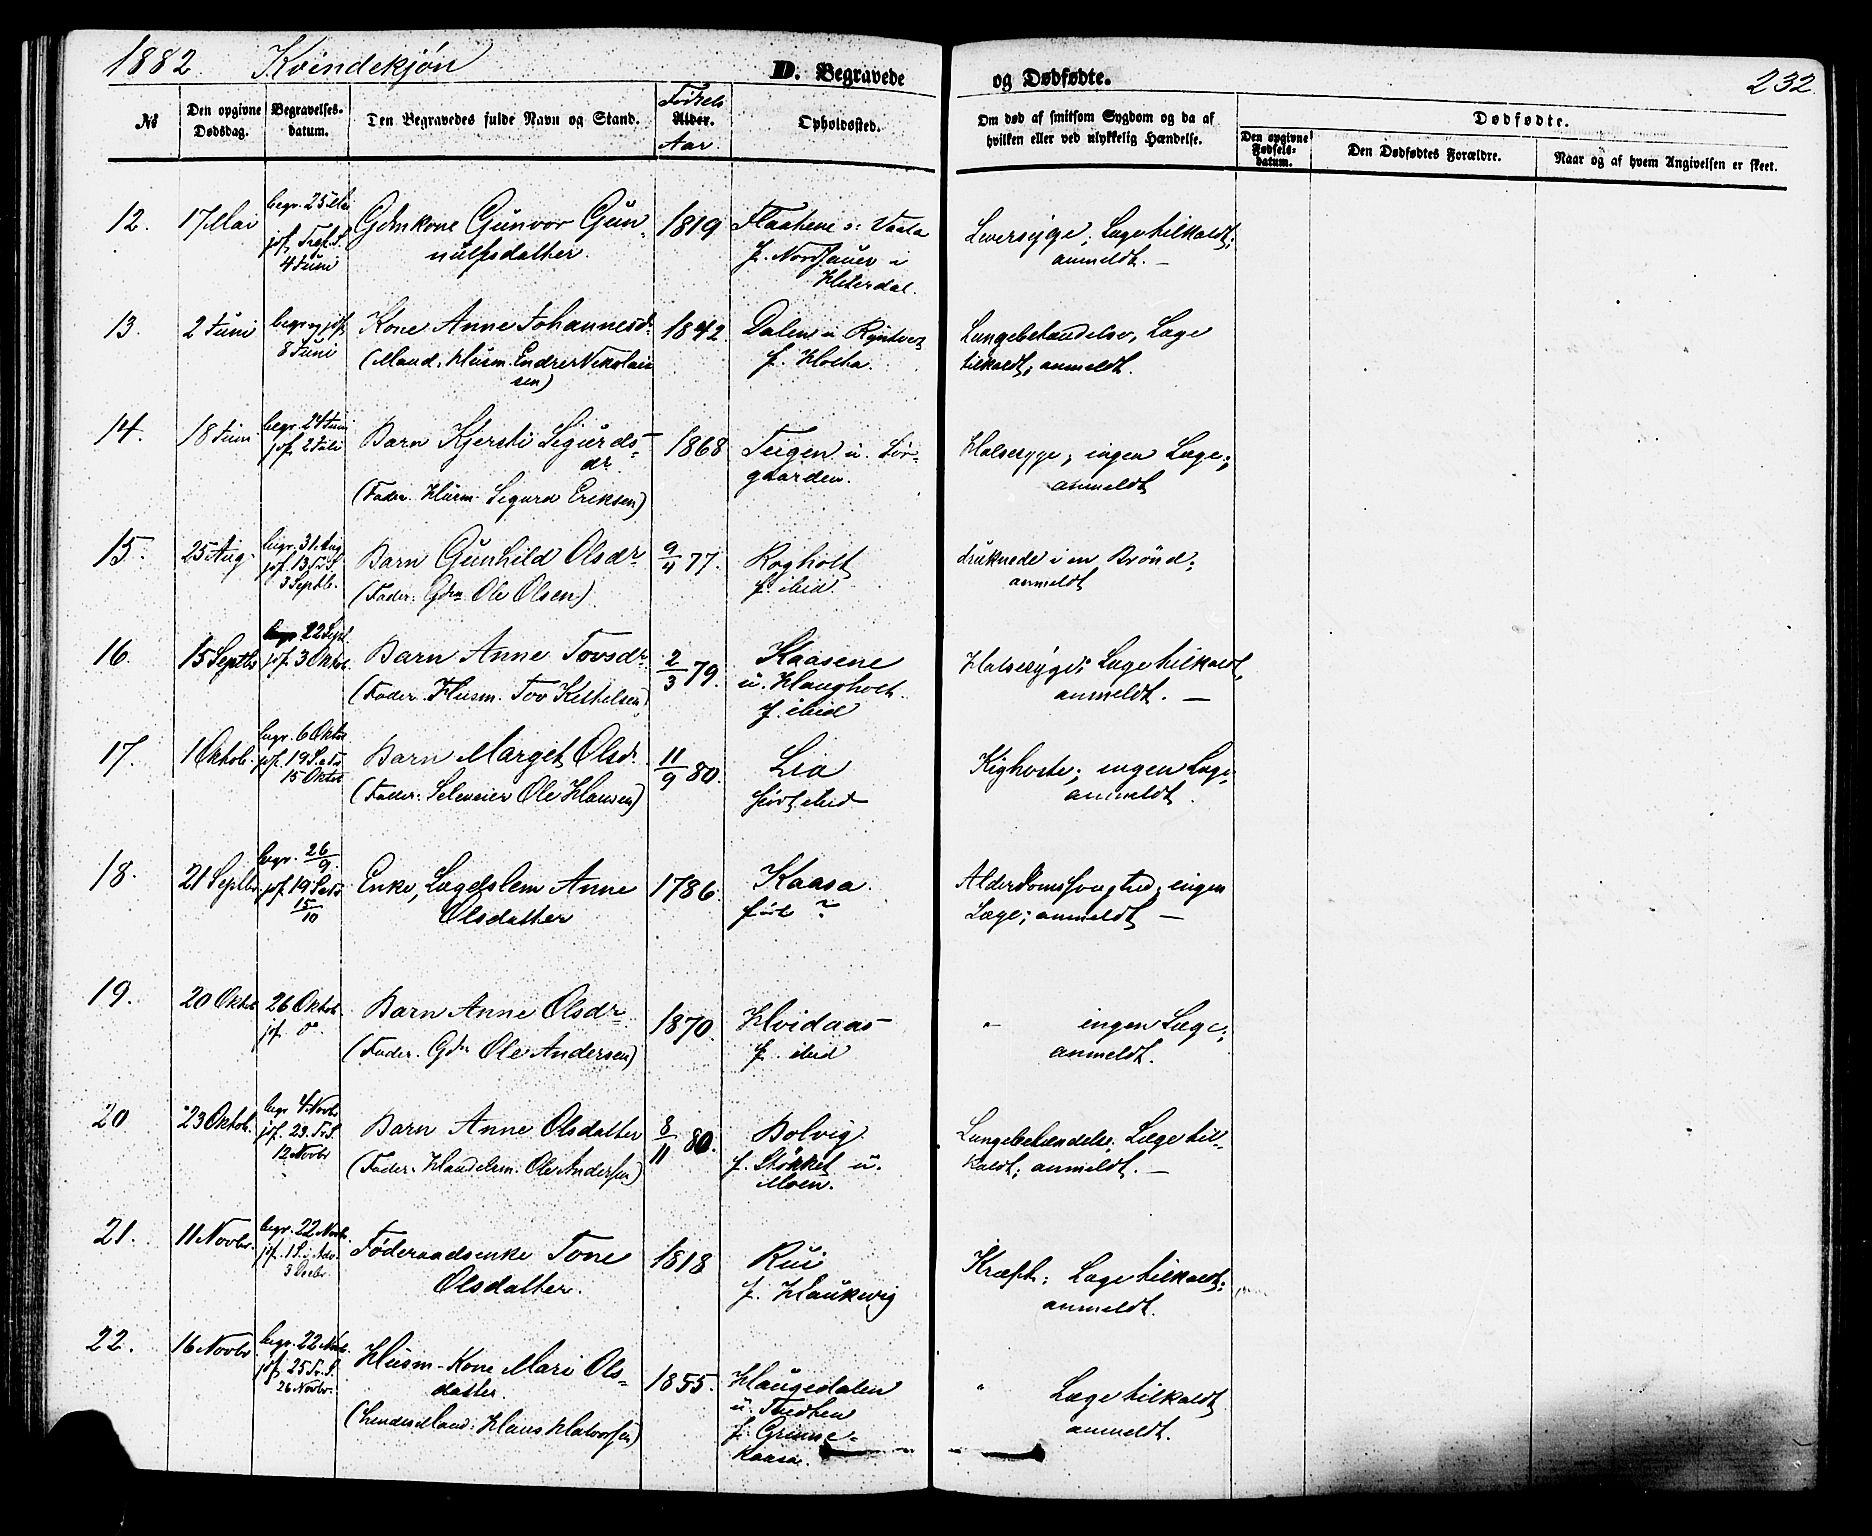 1882 Kvindekjøn
D. Begravede og Dødfødte.
232
No
Den opgivne Dødsdag.
Begravelses-datum.
Den Begravedes fulde Navn og Stand.
Fødsels
Alder.
Aar.
Opholdssted.
Om død af smitsom Sygdom og da af
hvilken eller ved ulykkelig Hændelse.
Dødfødte.
Den opgivne Fødsels-datum.
Den Dødfødtes Forældre.
Naar og af hvem Angivelsen er skeet.
12. 17 Mai
begr. 25 Mai
jof.
4 Juni
Gdmkone Gunvor Gun-
nulfsdatter.
1819
Flaathene u. Vaala
f. Nordsauer i
Hiterdal.
Leversyge; Læge tilkaldt;
anmeldt. —
13. 2 Juni
begr og jof
8 Juni
Kone Anne Johannesdr
(Mand. Husm. Endre Nikolai
sen)
1842.
Dalen u
f. Holta.
Lungebetændelse, Læge
tilkaldt; anmeldt.
14. 18 Juni
begr. 24 Juni
jof. 2 Juli
Barn Kjersti Sigurds-
dr.
(Fader. Husm. Sigurd Eriksen)
1868
Teigen u. Sør-
gaarden.
Halssyge; ingen Læge;
anmeldt
15. 25 Aug.
begr. 31 Aug
jof. 13 Tr. S.
3 Septb.
Barn Gunhild Olsdr
(Fader. Gdm Ole Olsen)
9/4 77.
Rogholt
f. ibid.
druknede i en Brønd;
anmeldt
16. 15 Septb
begr 22 Sept.
jof. 3 Oktob.
Barn Anne Tovsdr
(Fader. Husm. Tov Kittelsen)
2/3 79.
Kaasene
u. Haugholt.
f. ibid
Halssyge; Læge tilkaldt,
anmeldt. —
17. 1 Oktob.
begr. 6 Oktbr
jof. 19 S. e. Tr.
15 Oktbr
Barn Marget Olsdr.
(Fader. Seleveier Ole Hansen)
11/9 80.
Lia
født ibid
Kighoste; ingen Læge
anmeldt.
18. 21 Septbr
begr. 26/9.
jof. 19 S. e. Tr.
15/10
Enke, Lægdslem Anne
Olsdatter
1786.
Kaasa.
født ?
Alderdomssvaghed; ingen
Læge; anmeldt —
19. 20 Oktob
26 Oktob.
jof. do.
Barn Anne Olsdr
(Fader. Gdm Ole Andersen)
1870.
Hvidaas
f. ibid
" ingen Læge;
anmeldt.
20 23 Oktob.
begr 4 Novbr
jof. 23. Tr. S.
12 Novbr
Barn Anne Olsdatter
(Fader. Handelsm. Ole Andersen)
8/11 80.
Bolvig.
f. Stokket u.
Moen.
Lungebetændelse; Læge til-
kaldt; anmeldt. —
21. 11 Novbr.
begr. 22 Novb.
jof. 1 S. i Adv.
3 Decbr
Føderaadsenke Tone
Olsdatter.
1818
Rui
f. Haukevig
Kræft; Læge tilkaldt;
anmeldt.
22. 16 Novbr
begr. 22 Novb.
jof. 25 Tr. S.
26 Novbr.
Husm-Kone Mari Ols-
datter.
(Hendes Mand: Hans Halvorsen)
1855.
Haugedalen
u.
f. Grinne-
kaasa.
" Læge tilkaldt
anmeldt.